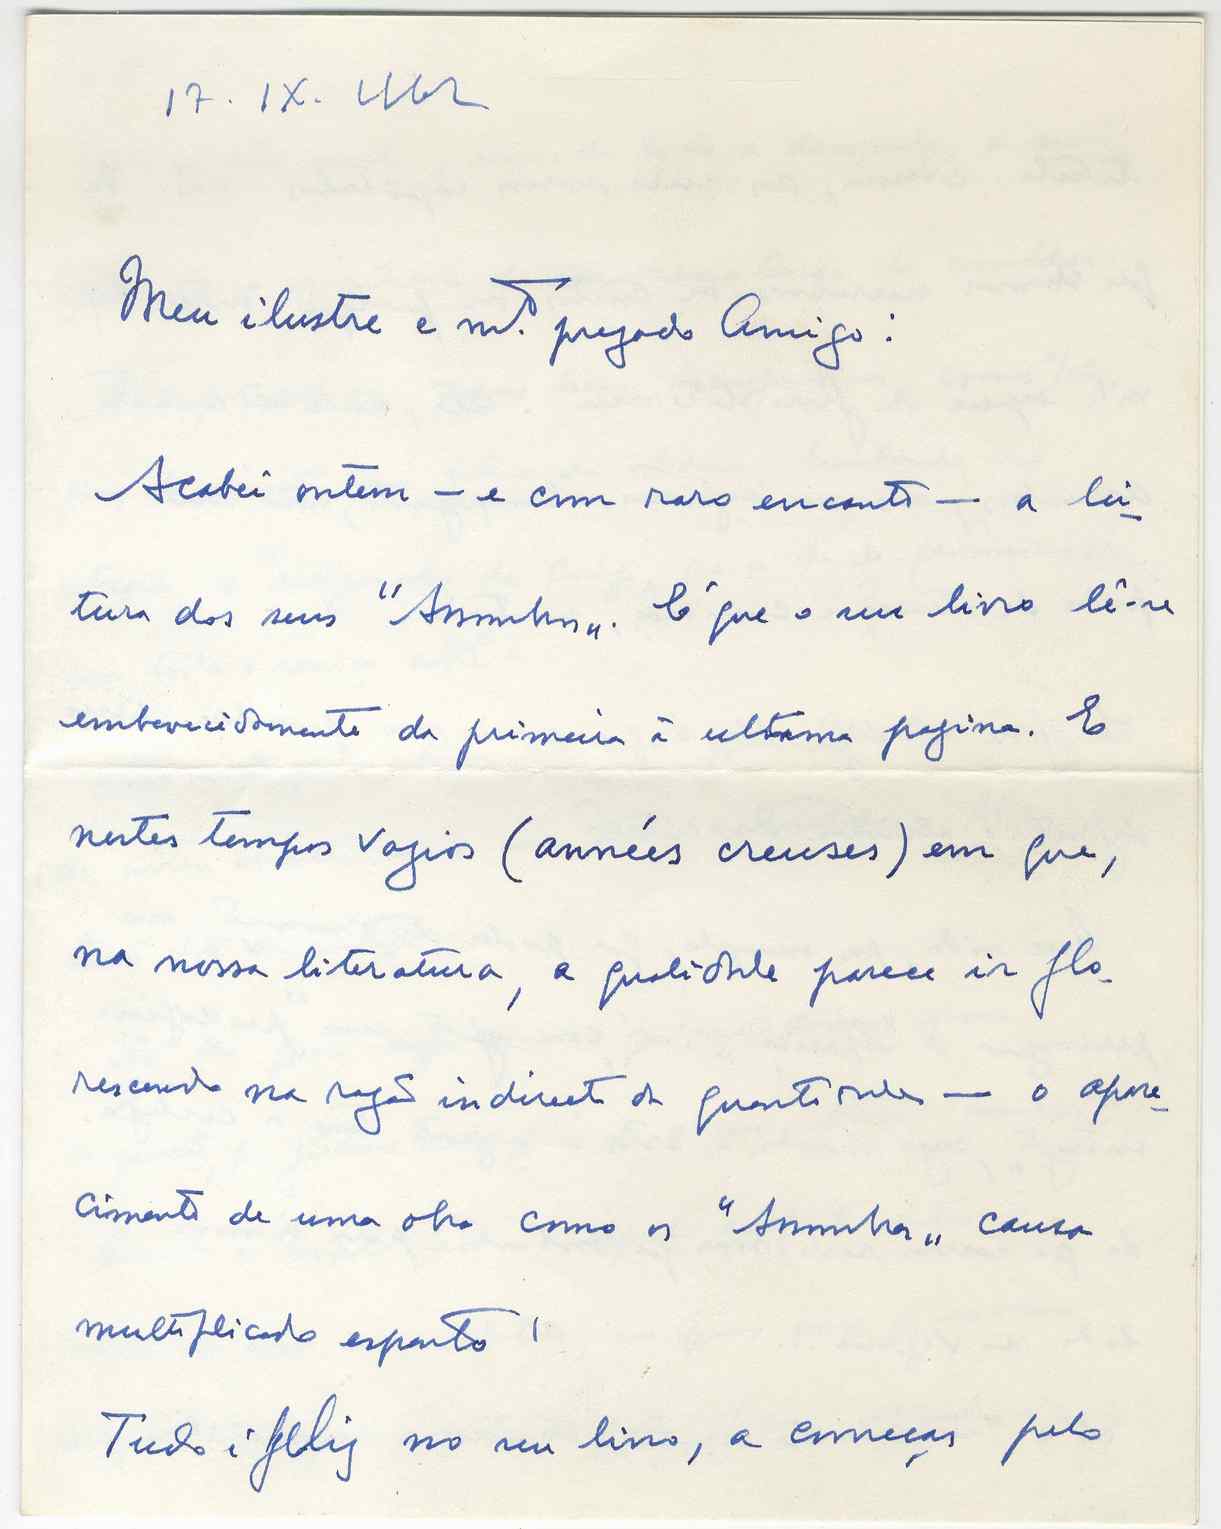 17. IX. 1962
Meu ilustre e mt.º prezado Amigo:
Acabei ontem — e com raro encanto — a lei-
tura dos seus "Assombros". É que o seu livro lê-se
embevecidamente da primeira à ultima pagina. E
nestes tempos vazios (années creuses) em que,
na nossa literatura, a qualidade parece ir flo-
rescendo na razão indirecta da quantidade — o apare-
cimento de uma obra como os "Assombros" causa
multiplicado espanto!
Tudo é feliz no seu livro, a começar pelo